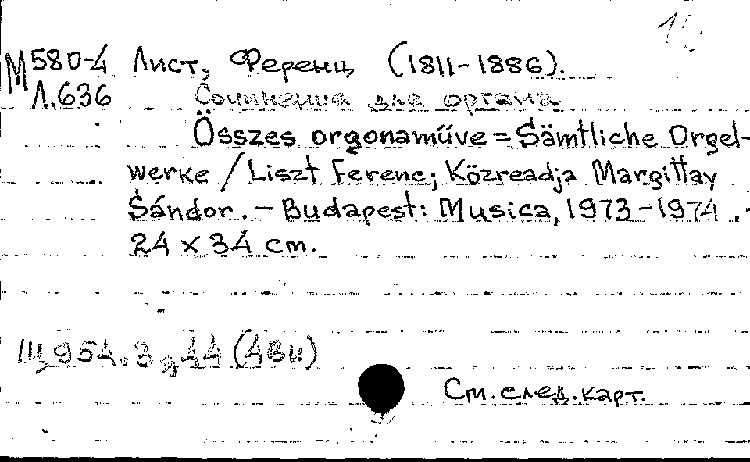 М580-4 Лист, Ференц (1811-1886).
Л.636 Сочинения для органа
Összes orgonamüve = Sämtliche Orgel-
werke / Liszt Ferenc; Közreadja Margittay
Sándor. - Budapest: Musica, 1973-1974.
24 x 34 cm.
Щ954.3я44(4Ви)
См. след. карт.